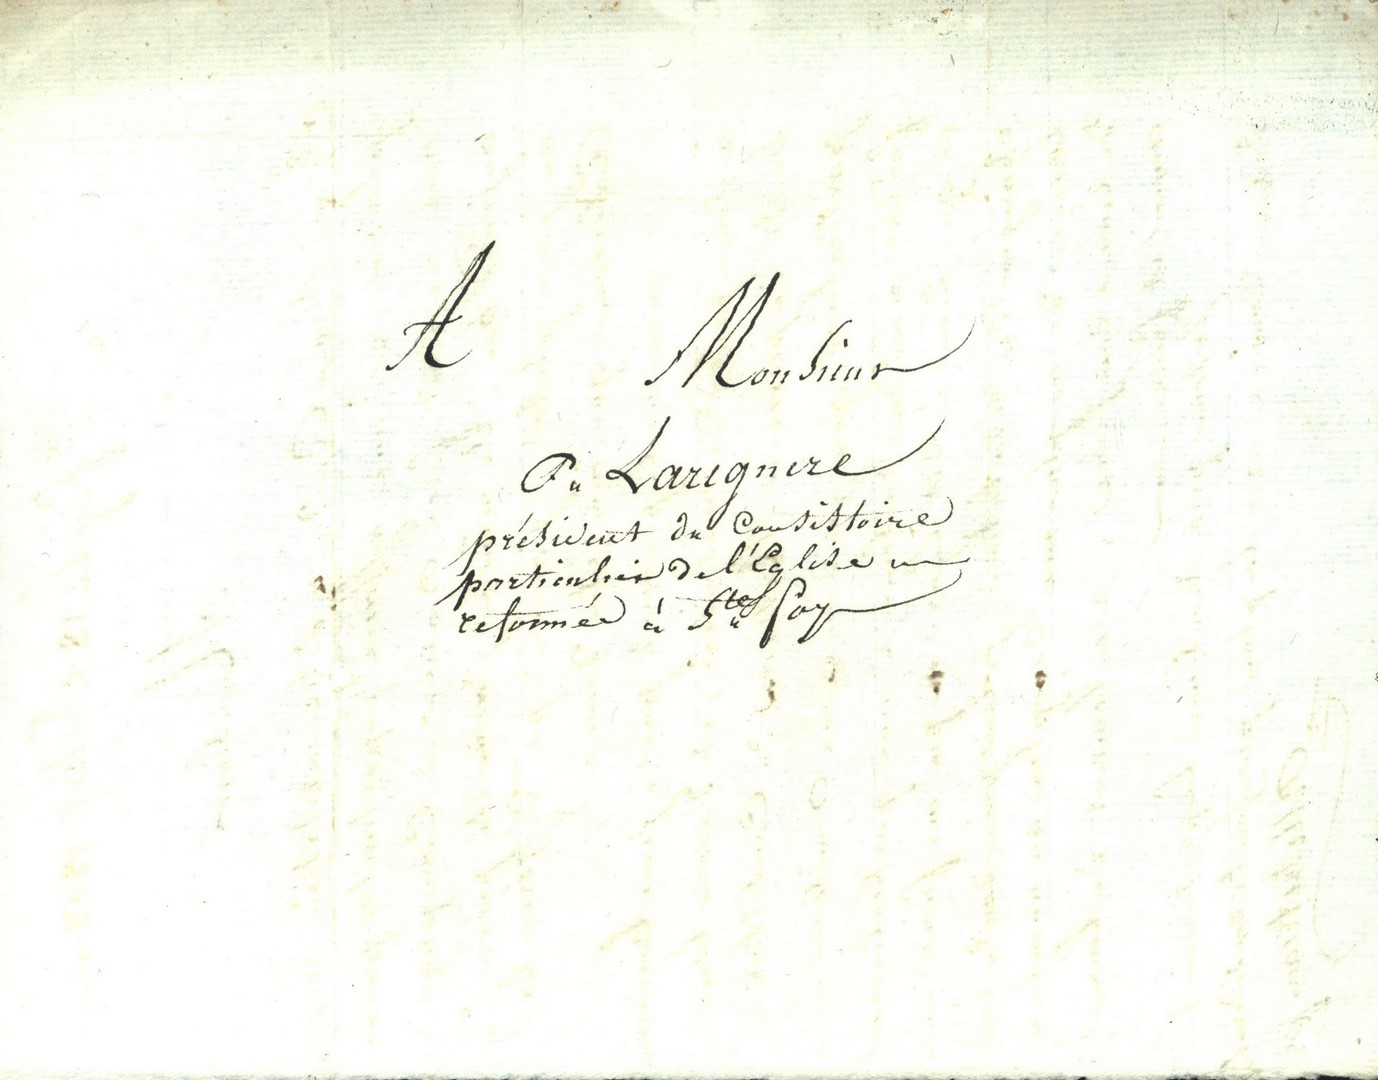 A Monsieur
Larignere
président du Consistoire
particulier de l'Eglise
reformée à Ste Foy